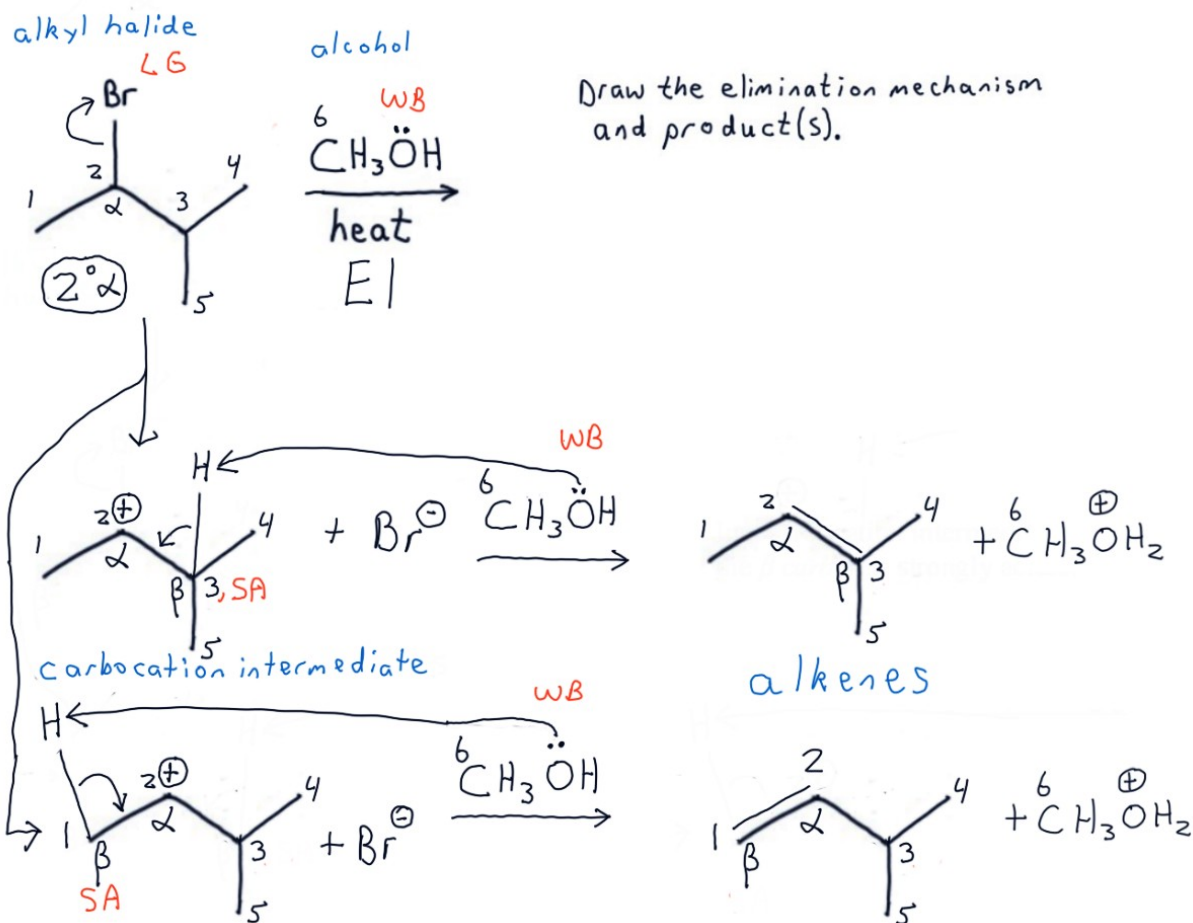 alkyl halide
LG
Br
2
1
α
3
4
5
2° α
alcohol
WB
6
CH₃ÖH
heat
E1
Draw the elimination mechanism
and product(s).
H
2 ⊕
1
α
4
β 3, SA
5
+ Br⊖
WB
6
CH₃ÖH
2
1
α
4
β 3
5
+ 6 ⊕
CH₃OH₂
carbocation intermediate
alkenes
H
2 ⊕
1
α
4
β
SA
3
5
+ Br⊖
WB
6
CH₃ÖH
2
1
α
4
β
3
5
+ 6 ⊕
CH₃OH₂